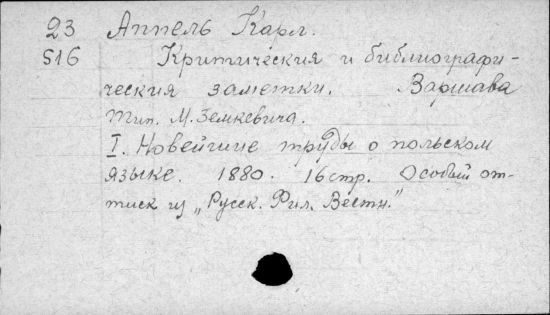 23 Аппель Карл.
516 Критическия и библиографи-
ческия заметки. Варшава
Тип. М. Земкевича.
I. Новейшие труды о польском
языке. 1880. 16 стр. Особый от-
тиск из „Русск. Фил. Вестн."